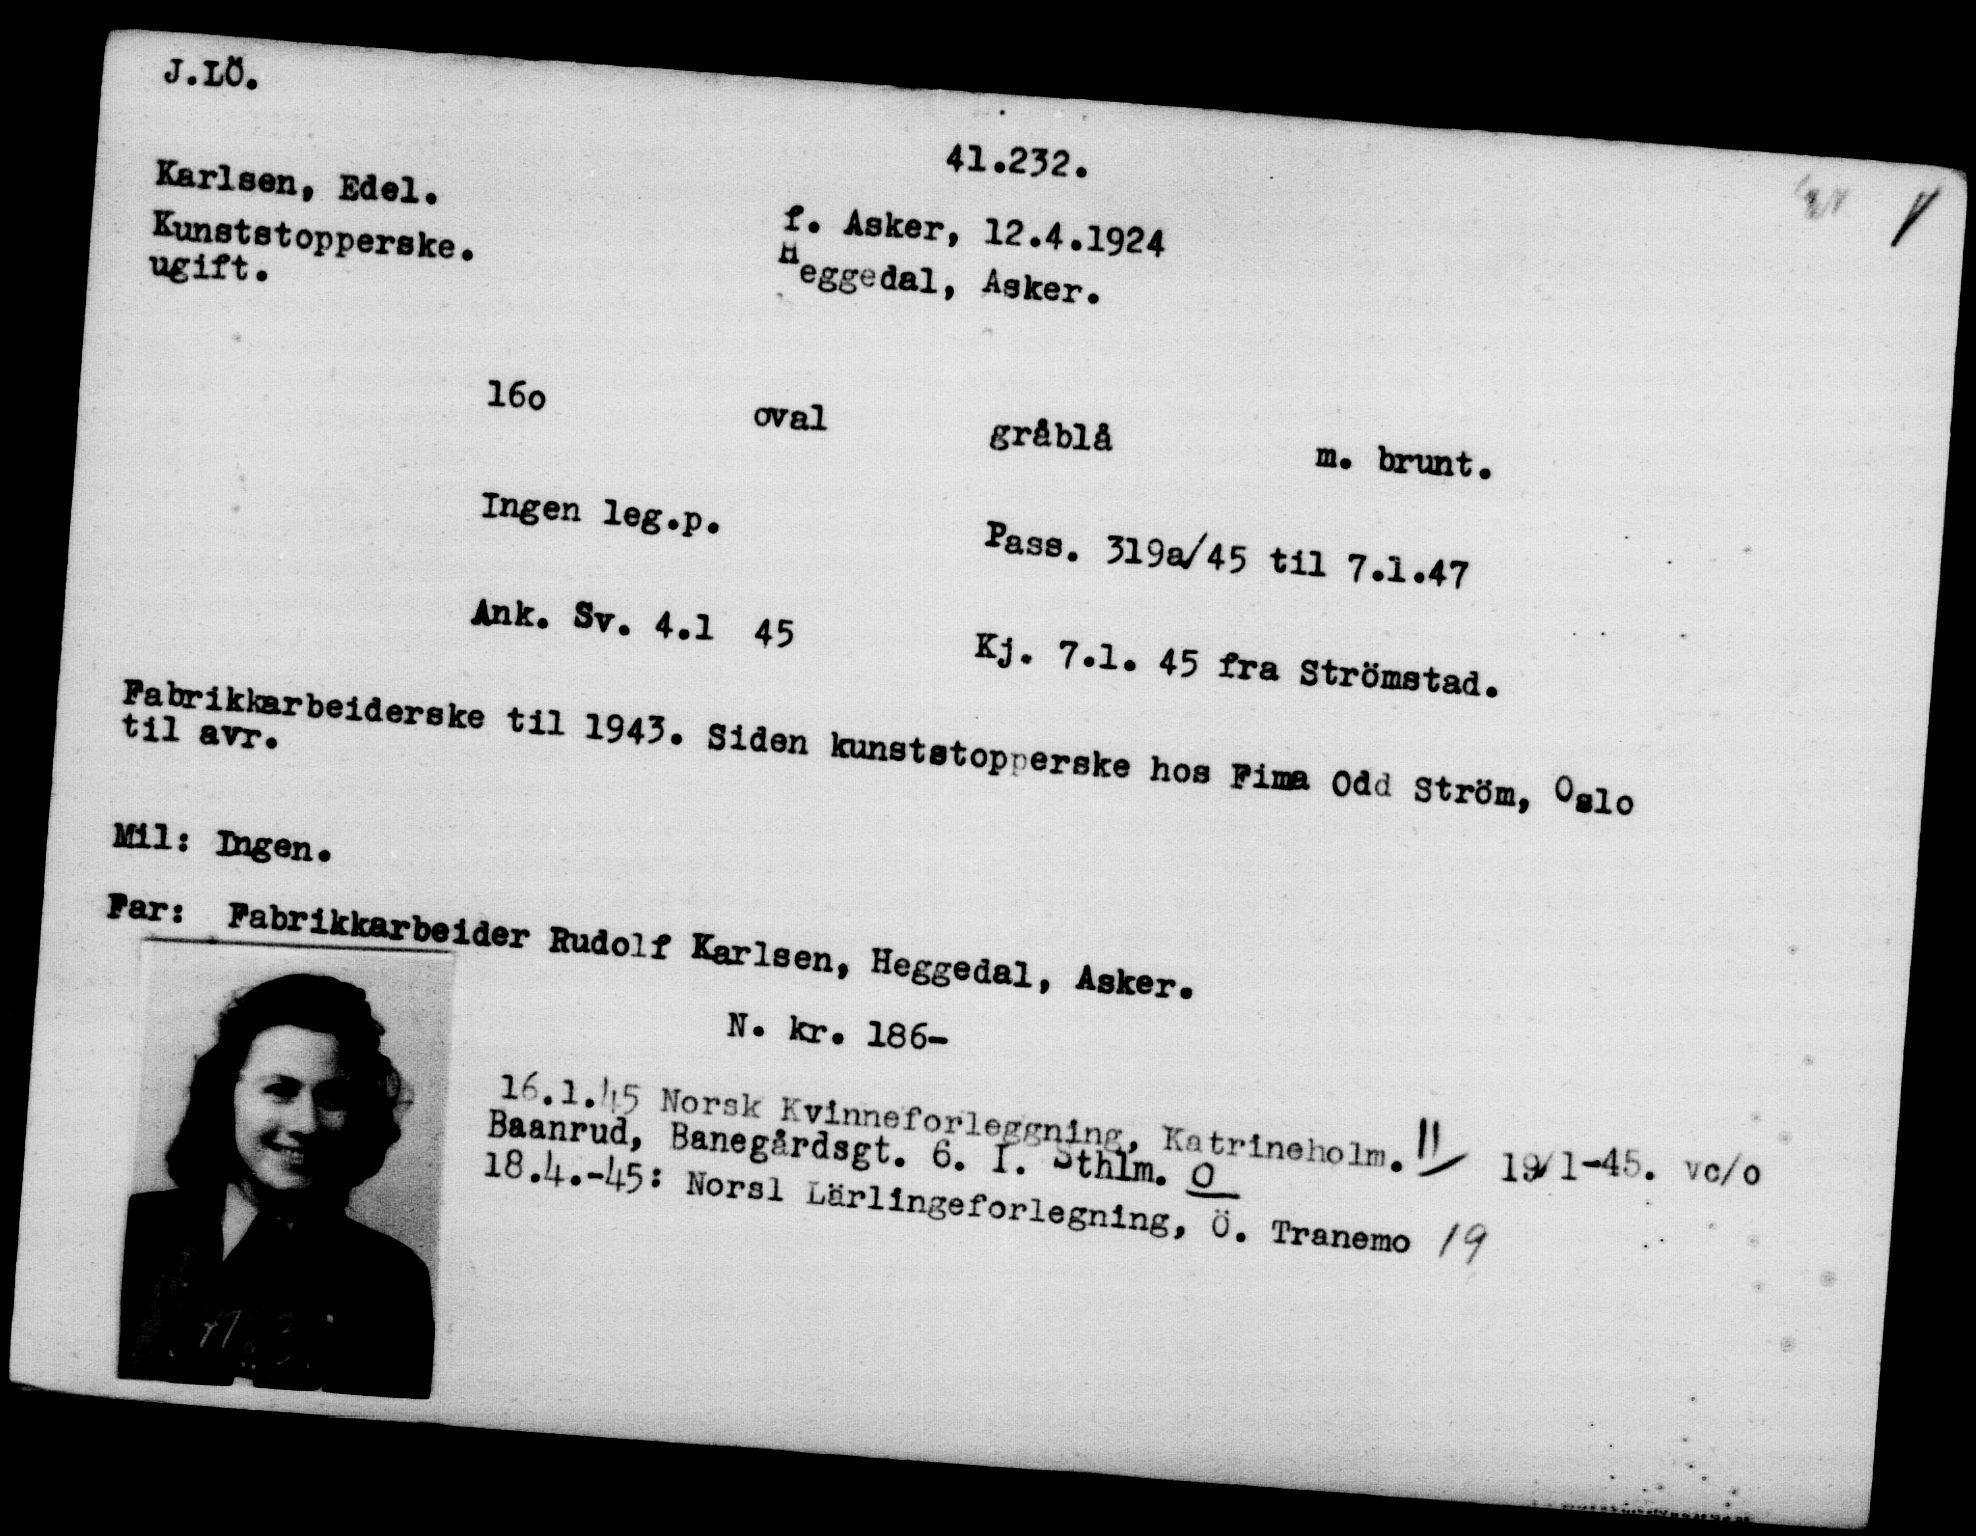 J.LÖ.
41.232.
Karlsen, Edel.
f. Asker, 12.4.1924
Kunststopperske.
Heggedal, Asker.
ugift.
16o oval gråblå m. brunt.
Ingen leg.p. Pass. 319a/45 til 7.1.47
Ank. Sv. 4.1 45 Kj. 7.1. 45 fra Strömstad.
Fabrikkarbeiderske til 1943. Siden kunststopperske hos Fima Odd Ström, Oslo
til avr.
Mil: Ingen.
Far: Fabrikkarbeider Rudolf Karlsen, Heggedal, Asker.
N. kr. 186-
16.1.45 Norsk Kvinneforleggning, Katrineholm. 11/ 19/1-45. vc/o
Baanrud, Banegårdsgt. 6. I. Sthlm. O
18.4.-45: Norsl Lärlingeforlegning, Ö. Tranemo 19